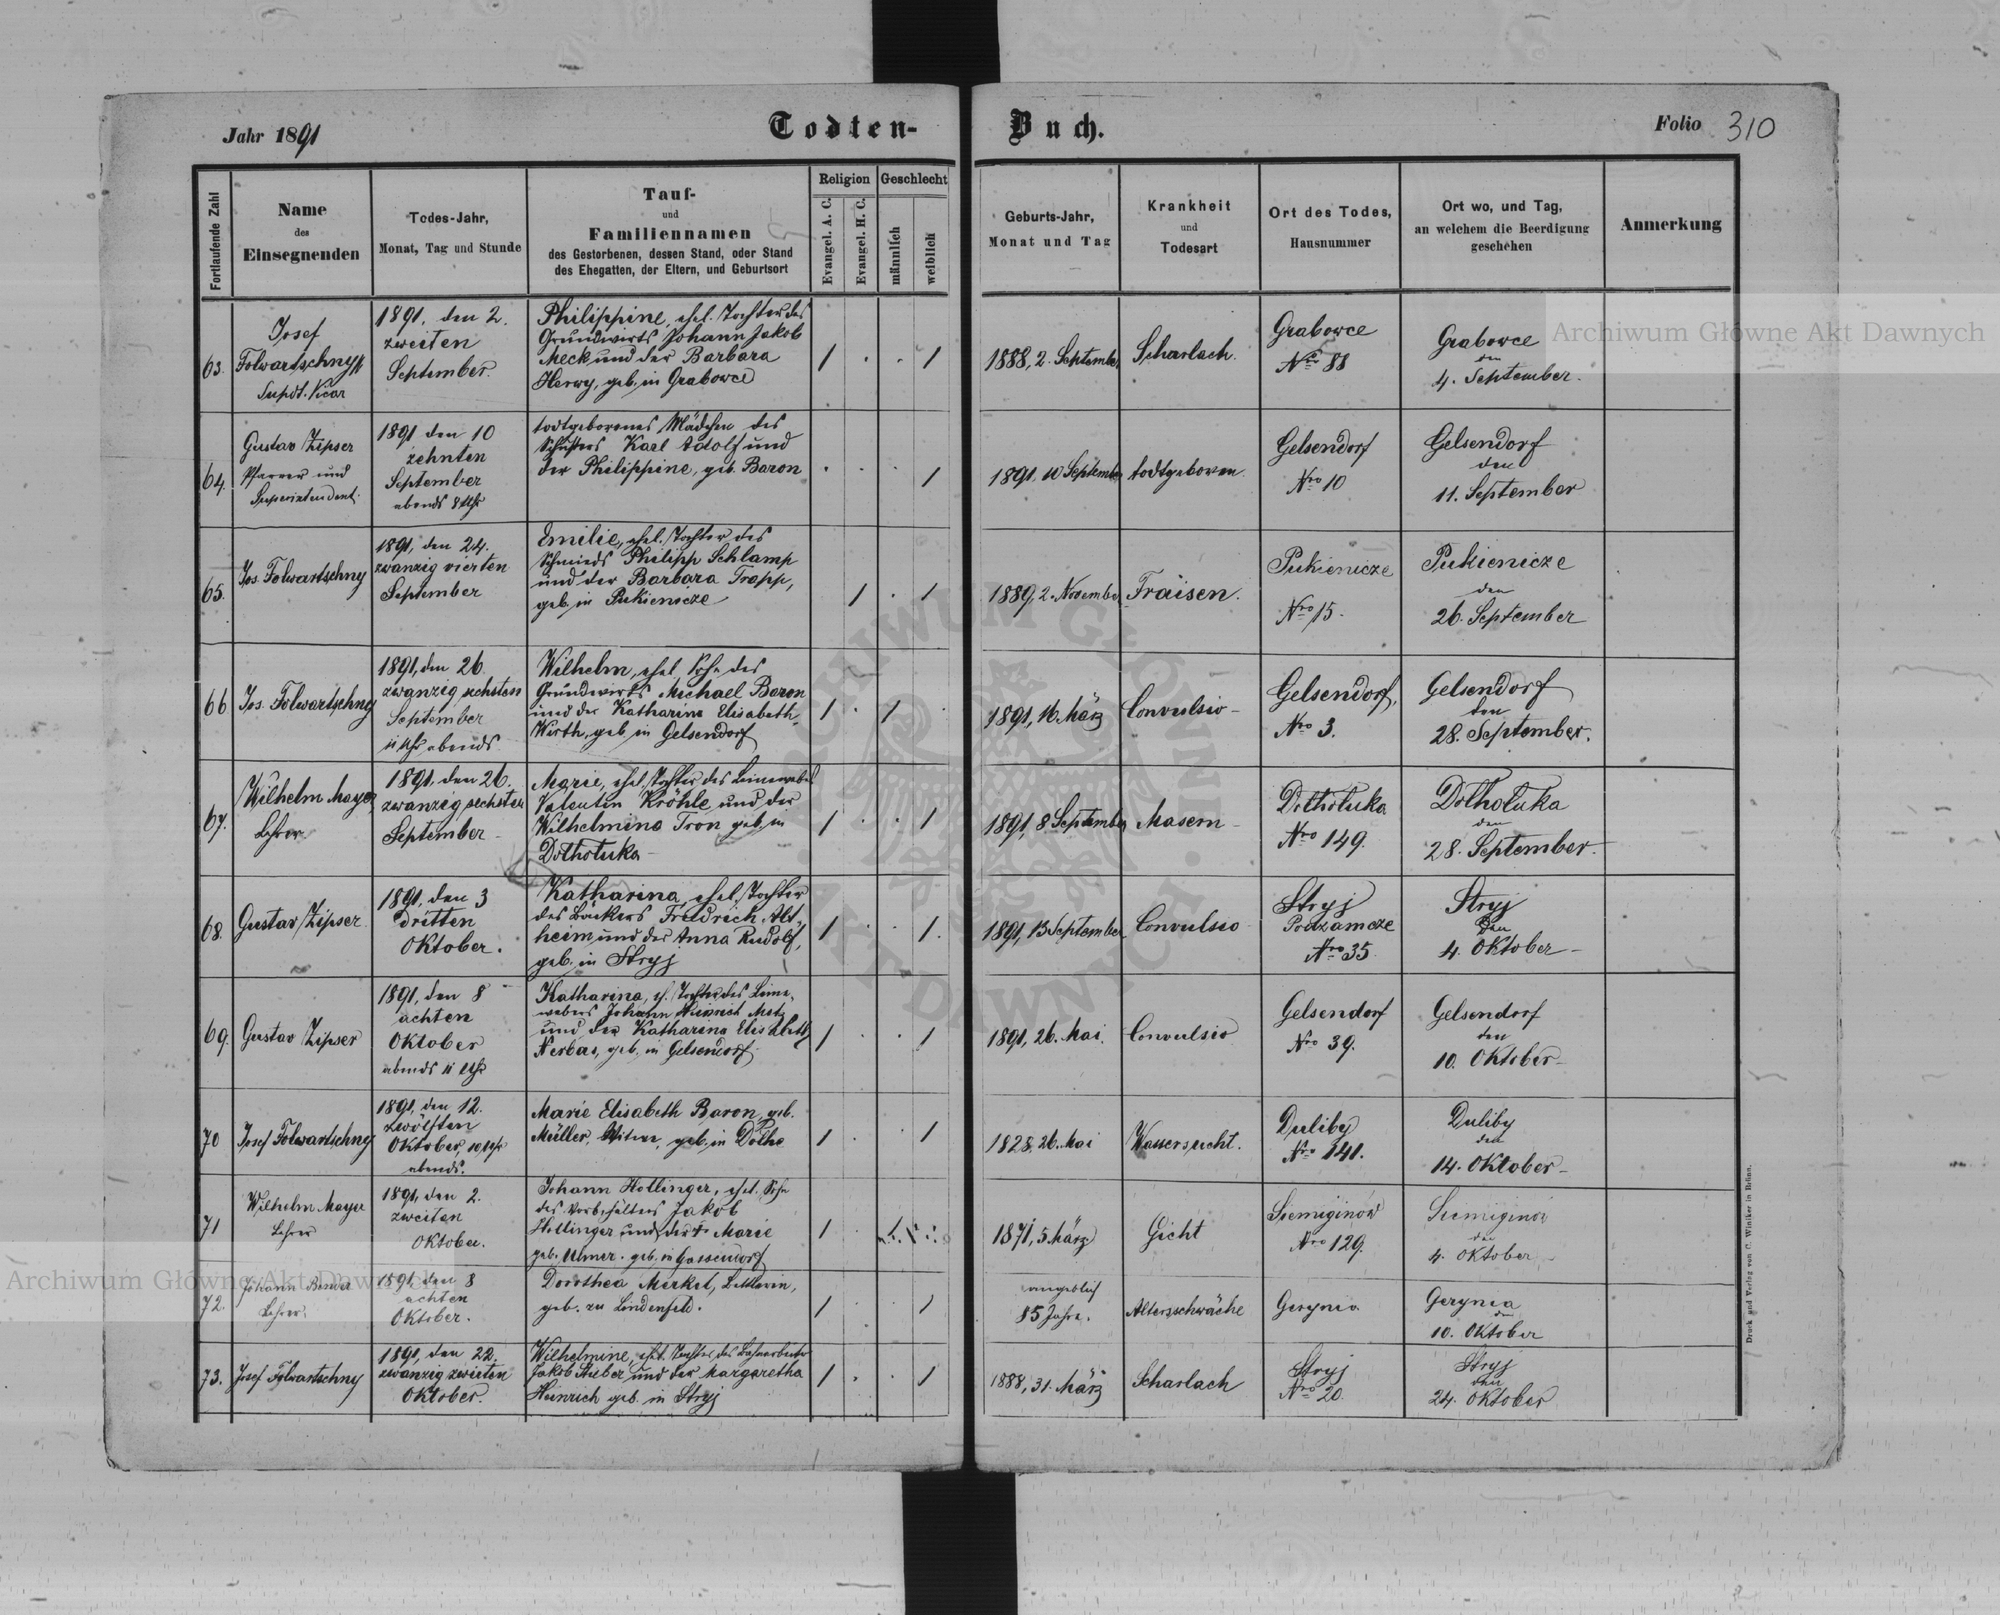 Jahr 1891
Todten-
Buch.
Folio 310
Fortlaufende Zahl
Name
des
Einsegnenden
Todes-Jahr,
Monat, Tag und Stunde
Tauf-
und
Familiennamen
des Gestorbenen, dessen Stand, oder Stand
des Ehegatten, der Eltern, und Geburtsort
Religion
Evangel. A. C.
Evangel. H. C.
Geschlecht
männlich
weiblich
Geburts-Jahr,
Monat und Tag
Krankheit
und
Todesart
Ort des Todes,
Hausnummer
Ort wo, und Tag,
an welchem die Beerdigung
geschehen
Anmerkung
63.
Josef
Folwartschny
Supdt. Vicar
1891, den 2.
zweiten
September.
Philippine, ehel. Tochter des
Grundwirts Johann Jakob
Meck und der Barbara
Herwy, geb. in Grabowce
1888, 2. September
Scharlach.
Grabowce
Nro 88
Grabowce
den
4. September.
64.
Gustav Zipser
Pfarrer und
Superintendent.
1891 den 10
zehnten
September
abends 8 Uhr
todtgeborenes Mädchen des
Schusters Karl Adolf und
der Philippine, geb. Baron
1891 10 September
todtgeboren.
Gelsendorf
Nro 10
Gelsendorf
den
11. September
65.
Jos. Folwartschny
1891, den 24.
zwanzig vierten
September
Emilie, ehel. Tochter des
Schmieds Philipp Schlamp
und der Barbara Trapp,
geb. in Pukienicze
1889, 2. November
Fraisen.
Pukienicze
Nro 15.
Pukienicze
den
26. September
66
Jos. Folwartschny
1891, den 26.
zwanzig sechsten
September
11 Uhr abends
Wilhelm, ehel. Sohn des
Grundwirts Michael Baron
und der Katharina Elisabeth
Wirth, geb. in Gelsendorf
1891, 16. März
Convulsio
Gelsendorf,
Nro 3.
Gelsendorf
den
28. September.
67.
Wilhelm Mayer
Lehrer
1891. den 26.
zwanzig sechsten
September
Marie, ehel. Tochter des Leinewebers
Valentin Kröhle und der
Wilhelmina Tron geb. in
Dolhołuka
1891, 8 September
Masern
Dolhołuka
Nro 149.
Dolhołuka
den
28. September.
68.
Gustav Zipser
1891, den 3
dritten
Oktober.
Katharina, ehel. Tochter
des Bäckers Friedrich Alt-
heim und der Anna Rudolf,
geb. in Stryj
1891, 13 September
Convulsio
Stryj
Podzamcze
Nro 35.
Stryj
den
4. Oktober
69.
Gustav Zipser
1891, den 8
achten
Oktober
abends 11 Uhr
Katharina, eh. Tochter des Leine-
webers Johann Heinrich Metz
und der Katharina Elisabeth
Nerbas, geb. in Gelsendorf.
1891, 26. Mai.
Convulsio
Gelsendorf
Nro 39.
Gelsendorf
den
10. Oktober
70
Josef Folwartschny
1891, den 12.
zwölften
Oktober, 10 Uhr
abends.
Marie Elisabeth Baron, geb.
Müller, Witwe, geb. in Dolhe
1828. 26. Mai
Wassersucht.
Duliby
Nro 141.
Duliby
den
14. Oktober
71
Wilhelm Mayer
Lehrer
1891, den 2.
zweiten
Oktober.
Johann Hollinger, ehel. Sohn
des Jakob
Hollinger und der Marie
geb. Ulmer. geb. in Gassendorf
1871, 5 März
Gicht
Siemiginow
Nro 129.
Siemiginow
den
4. Oktober
72.
Johann
Lehrer.
1891, den 8
achten
Oktober.
Dorothea Merkel, Bettlerin,
geb. zu Lindenfeld.
angeblich
85 Jahre.
Altersschwäche
Gerynia
Gerynia
den
10. Oktober
73.
Josef Folwartschny
1891, den 22.
zwanzig zweiten
Oktober.
Wilhelmine, ehel. Tochter des Bahnarbeiters
Jakob und der Margaretha
Heinrich geb. in Stryj
1888, 31. März
Scharlach
Stryj
Nro 20.
Stryj
den
24. Oktober
Druck und Verlag von C. Winiker in Brünn.
Archiwum Główne Akt Dawnych
Archiwum Główne Akt Dawnych
ARCHIWUM GŁÓWNE AKT DAWNYCH